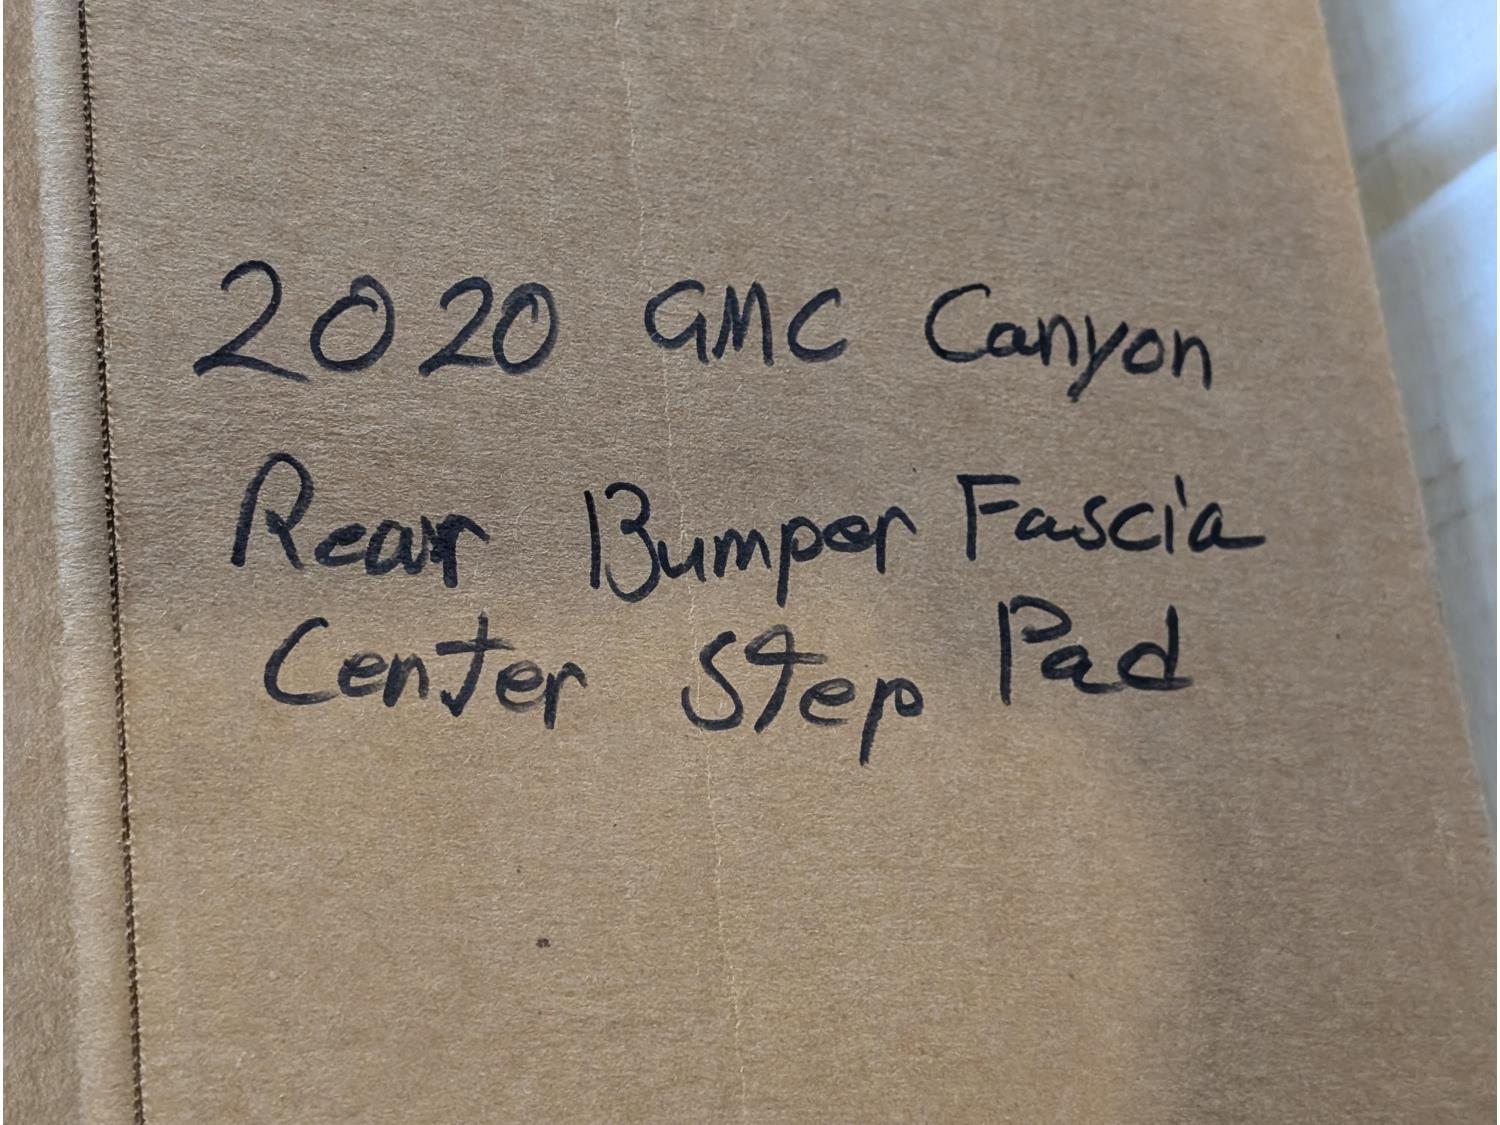 2020 GMC Canyon
Rear Bumper Fascia
Center Step Pad